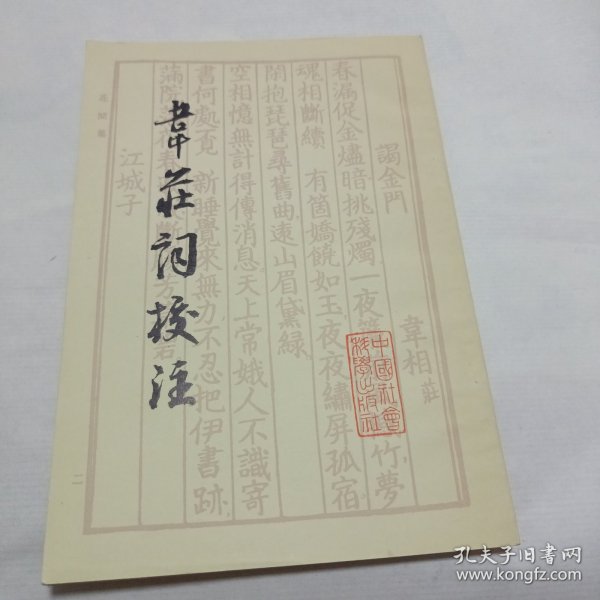 韋莊詞校注
花間集
謁金門
韋相莊
春漏促金爐暗挑殘燭一夜
竹夢
魂相斷續 有箇嬌饒如玉夜夜繡屏孤宿
閑抱琵琶尋舊曲遠山眉黛綠
空相憶無計得傳消息天上常娥人不識寄
書何處覓 新睡覺來無力不忍把伊書跡
滿院
春
斷
方
江城子
二
中國社會
科學出版社
孔夫子旧书网
www.kongfz.com